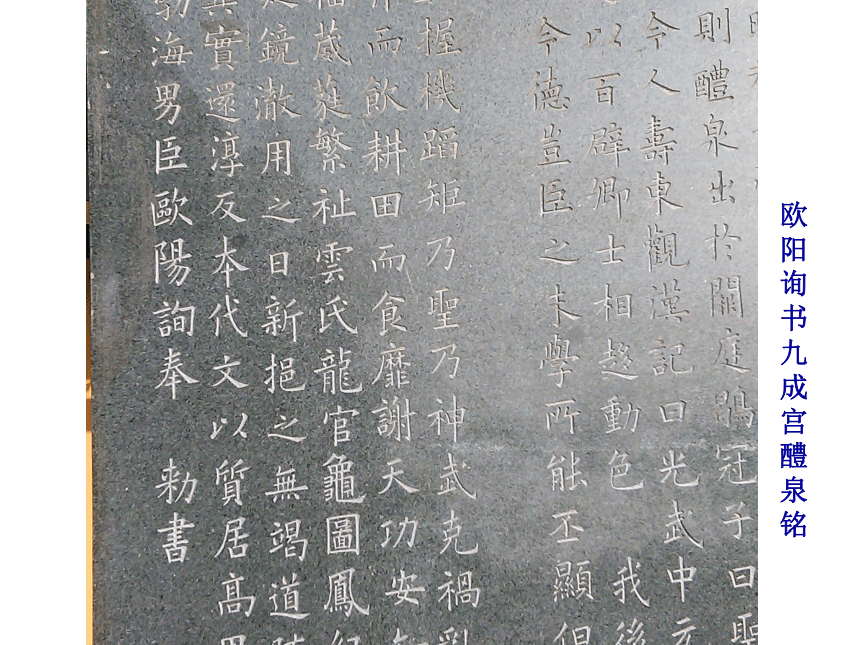 欧阳询书九成宫醴泉铭
則醴泉出於闕庭鶡冠子曰聖
令人壽東觀漢記曰光武中元
以百辟卿士相趍動色 我後
令徳豈臣之末學所能丕顯但
握機蹈矩乃聖乃神武克禍
而飲耕田而食靡謝天功安
葳蕤繁祉雲氏龍官龜圖鳳紀
鏡澈用之日新挹之無竭道
實還淳反本代文以質居高
勃海男臣歐陽詢奉 勅書